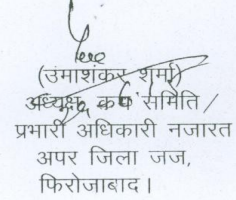 (उमाशंकर शर्मा)
अध्यक्ष क्रय समिति /
प्रभारी अधिकारी नजारत
अपर जिला जज,
फिरोजाबाद।